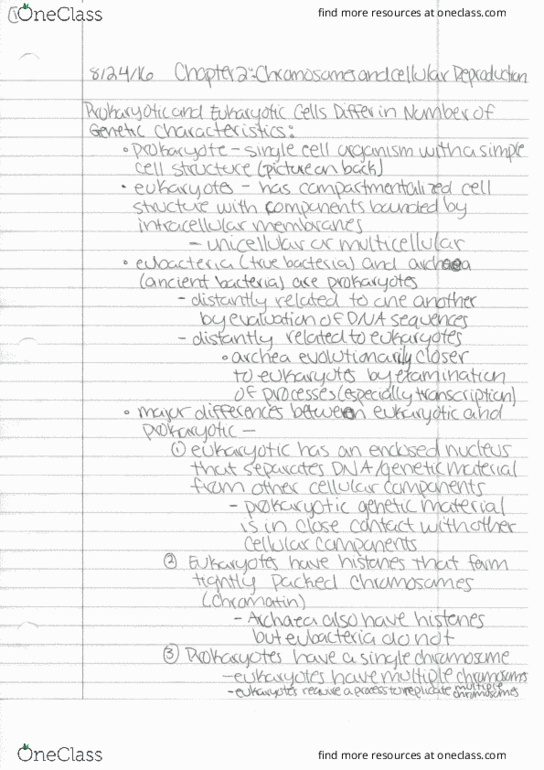 OneClass
find more resources at oneclass.com
8/24/16 Chapter 2: Chromosomes and cellular Reproduction
Prokaryotic and Eukaryotic Cells Differ in Number of
Genetic Characteristics:
• prokaryote - single cell organism with a simple
cell structure (picture on back)
• eukaryote - has compartmentalized cell
structure with components bounded by
intracellular membranes
- unicellular or multicellular
• eubacteria (true bacteria) and archaea
(ancient bacteria) are prokaryotes
- distantly related to one another
by evaluation of DNA sequences
- distantly related to eukaryotes
• archea evolutionarily closer
to eukaryotes by examination
of processes (especially transcription)
• major differences between eukaryotic and
prokaryotic -
① eukaryotic has an enclosed nucleus
that separates DNA/genetic material
from other cellular components
- prokaryotic genetic material
is in close contact with other
cellular components
② Eukaryotes have histones that form
tightly packed chromosomes
(chromatin)
- Archaea also have histones
but eubacteria do not
③ Prokaryotes have a single chromosome
- eukaryotes have multiple chromosoms
- eukaryotes require a process to replicate multiple chromosomes
OneClass
find more resources at oneclass.com